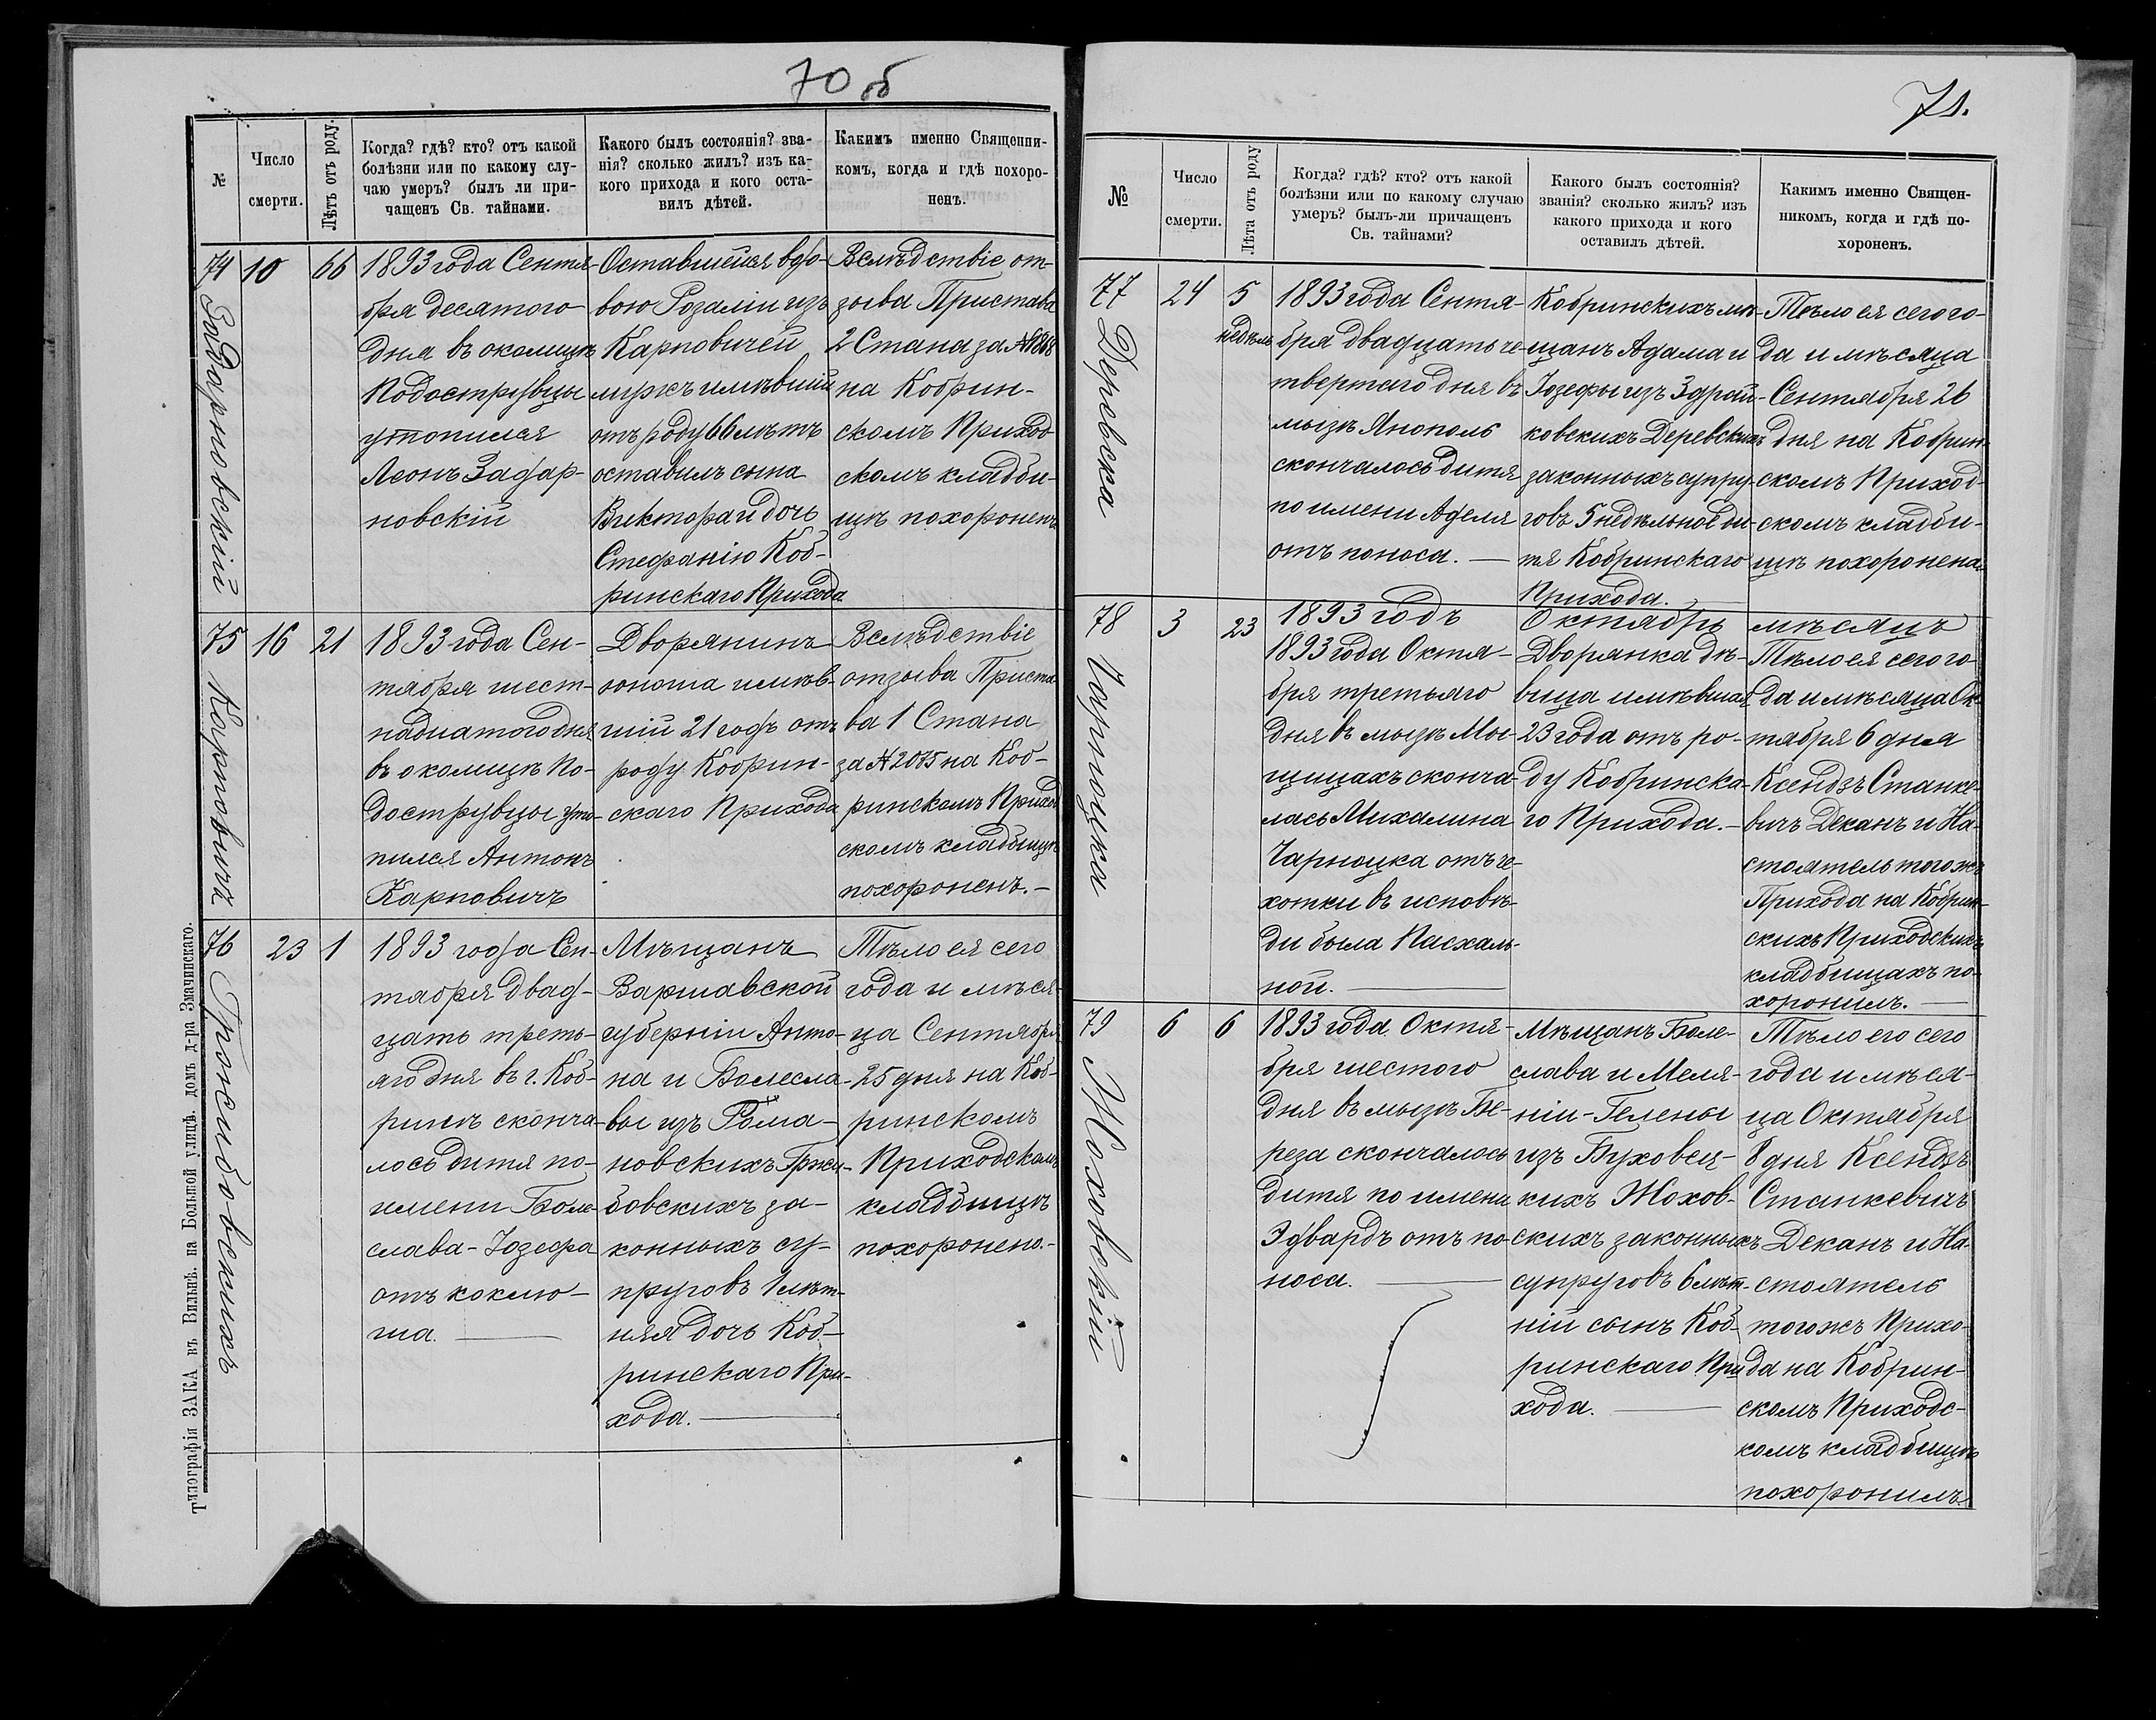 70 об
№
Число
смерти.
Лѣтъ отъ роду.
Когда? гдѣ? кто? отъ какой
болѣзни или по какому слу-
чаю умеръ? былъ ли при-
чащенъ Св. тайнами.
Какого былъ состоянія? зва-
нія? сколько жилъ? изъ ка-
кого прихода и кого оста-
вилъ дѣтей.
Какимъ именно Священни-
комъ, когда и гдѣ похоро-
ненъ.
74
Задарновскій
10
66
1893 года Сентя-
бря десятого
дня въ околицѣ
Подострувцы
утопился
Леонъ Задар-
новскій
Оставшейся вдо-
вою Розаліи изъ
Карповичей
мужъ имѣвшій
отъ роду 66 лѣтъ
оставилъ сына
Виктора и дочь
Стефанію Коб-
ринскаго Прихода
Вслѣдствіе от-
зыва Пристава
2 Стана за №
на Кобрин-
скомъ Приход-
скомъ кладби-
щѣ похороненъ
75
Карповичъ
16
21
1893 года Сен-
тября шест-
надцатого дня
въ околицѣ По-
дострувцы уто-
пился Антонъ
Карповичъ
Дворянинъ
юноша имѣв-
шій 21 годъ отъ
роду Кобрин-
скаго Прихода
Вслѣдствіе
отзыва Приста-
ва 1 Стана
за № 2085 на Коб-
ринскомъ Приход
скомъ кладбищѣ
похороненъ.-
76
Гржибовскихъ
23
1
1893 года Сен-
тября двад-
цать треть-
яго дня въ г. Коб-
ринѣ сконча-
лось дитя по-
имени Боле-
слава-Іозефа
отъ коклю-
ша.
Мѣщанъ
Варшавской
губерніи Анто-
на и Болесла-
вы изъ Рома-
новскихъ Гржи-
бовскихъ за-
конныхъ су-
пруговъ 1 лѣт-
няя дочь Коб-
ринскаго При-
хода.
Тѣло ея сего
года и мѣся-
ца Сентября
25 дня на Коб-
ринскомъ
Приходскомъ
кладбищѣ
похоронено.-
Типографія ЗАКА въ Вильнѣ. на Большой улицѣ. домъ д-ра Змачинскаго.
71.
№
Число
смерти.
Лѣта отъ роду
Когда? гдѣ? кто? отъ какой
болѣзни или по какому случаю
умеръ? былъ-ли причащенъ
Св. тайнами?
Какого былъ состоянія?
званія? сколько жилъ? изъ
какого прихода и кого
оставилъ дѣтей.
Какимъ именно Священ-
никомъ, когда и гдѣ по-
хороненъ.
77
Деревска
24
5
недѣль
1893 года Сентя-
бря двадцать че-
твертаго дня въ
мызѣ Янополь
скончалось дитя
по имени Аделя
отъ поноса.
Кобринскихъ мѣ-
щанъ Адама и
Іозефы изъ Здрай-
ковскихъ Деревскихъ
законныхъ супру-
говъ 5 недѣльное ди-
тя Кобринскаго
Прихода.
Тѣло ея сего го-
да и мѣсяца
Сентября 26
дня на Кобрин-
скомъ Приход-
скомъ кладби-
щѣ похоронена
1893 годъ Октябрь мѣсяцъ
78
Чарноцка
3
23
1893 года Октя-
бря третьяго
дня въ мызѣ Мы-
щицахъ сконча-
лась Михалина
Чарноцка отъ че-
хотки въ исповѣ-
ди была Пасхаль-
ной.
Дворянка дѣ-
вица имѣвшая
23 года отъ ро-
ду Кобринска-
го Прихода.-
Тѣло ея сего го-
да и мѣсяца Ок-
тября 6 дня
Ксендзъ Станке-
вичъ Деканъ и На-
стоятель того жъ
Прихода на Кобрин-
скихъ Приходскихъ
кладбищахъ по-
хоронилъ.
79
Жоховскій
6
6
1893 года Октя-
бря шестого
дня въ мызѣ Бе-
реза скончалось
дитя по имени
Эдвардъ отъ по-
носа.
Мѣщанъ Боле-
слава и Меля-
ніи-Гелены
изъ Буховец-
кихъ Жохов-
скихъ законныхъ
супруговъ 6 лѣт-
ній сынъ Коб-
ринскаго При
хода.
Тѣло его сего
года и мѣся-
ца Октября
8 дня Ксендзъ
Станкевичъ
Деканъ и На-
стоятель
тогожъ Прихо-
да на Кобрин-
скомъ Приходс-
комъ кладбищѣ
похоронилъ